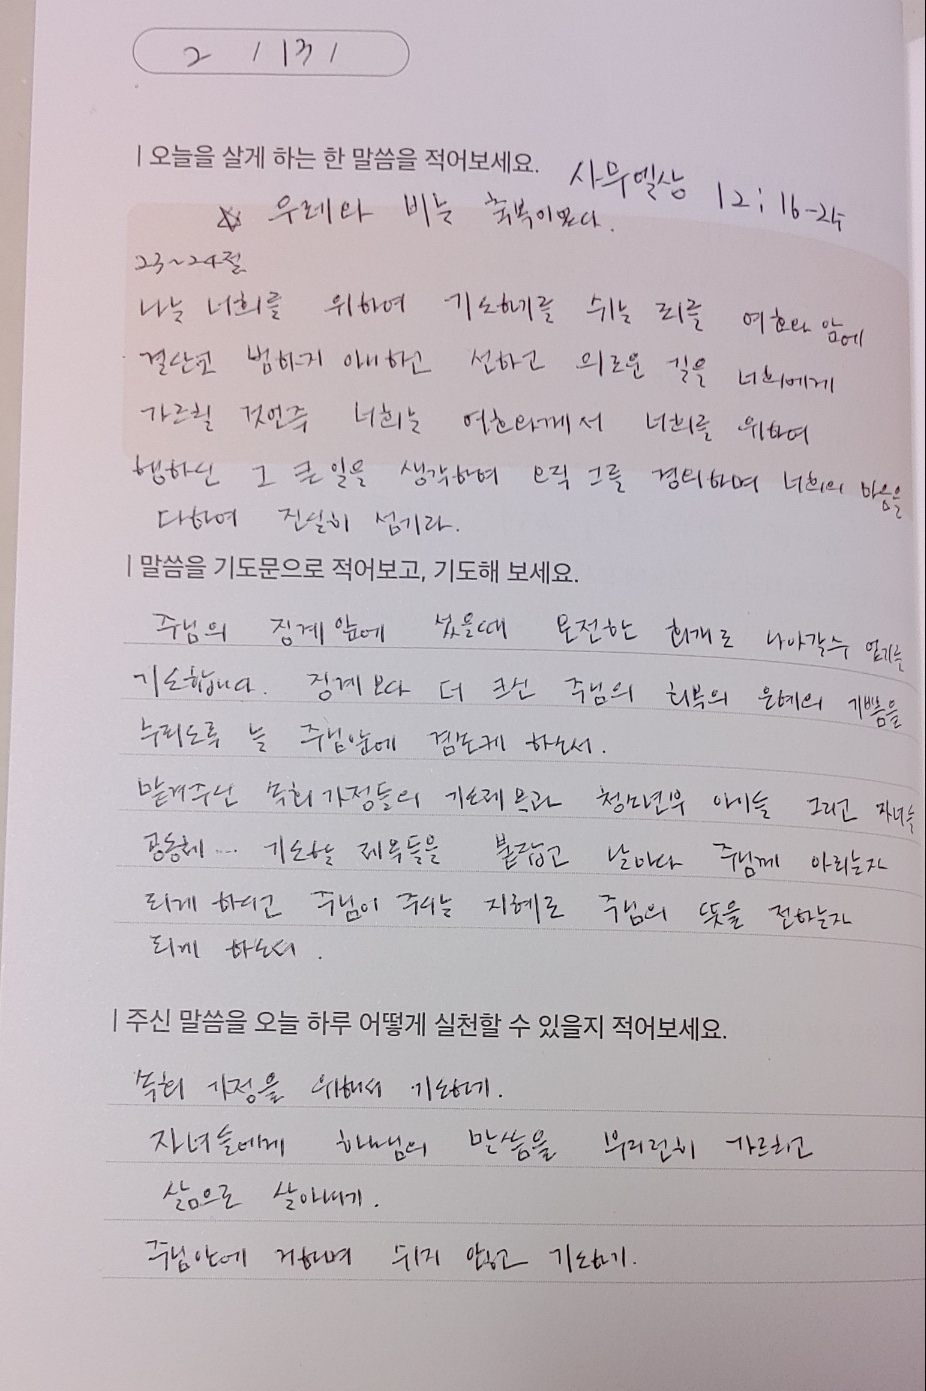 2 / 13 /
| 오늘을 살게 하는 한 말씀을 적어보세요. 사무엘상 12:16-25
☆ 우레와 비는 축복이었다.
23~24절
나는 너희를 위하여 기도하기를 쉬는 죄를 여호와 앞에
결단코 범하지 아니하고 선하고 의로운 길을 너희에게
가르칠 것인즉 너희는 여호와께서 너희를 위하여
행하신 그 큰 일을 생각하여 오직 그를 경외하며 너희의 마음을
다하여 진실히 섬기라.
| 말씀을 기도문으로 적어보고, 기도해 보세요.
주님의 징계앞에 섰을때 온전한 회개로 나아갈수 있기를
기도합니다. 징계보다 더 크신 주님의 회복의 은혜의 기쁨을
누리도록 늘 주님앞에 겸손케 하소서.
맡겨주신 속회가정들의 기도제목과 청소년부 아이들 그리고 자녀들
공동체... 기도할 제목들을 붙잡고 날마다 주님께 아뢰는자
되게 하시고 주님이 주시는 지혜로 주님의 뜻을 전하는자
되게 하소서.
| 주신 말씀을 오늘 하루 어떻게 실천할 수 있을지 적어보세요.
속회 가정을 위해서 기도하기.
자녀들에게 하나님의 말씀을 부지런히 가르치고
삶으로 살아내기.
주님안에 거하며 쉬지 않고 기도하기.